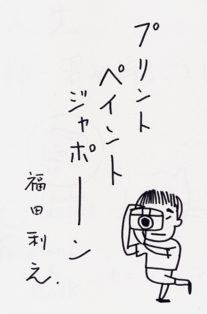 プリント
ペイント
ジャポーン
福田利之.